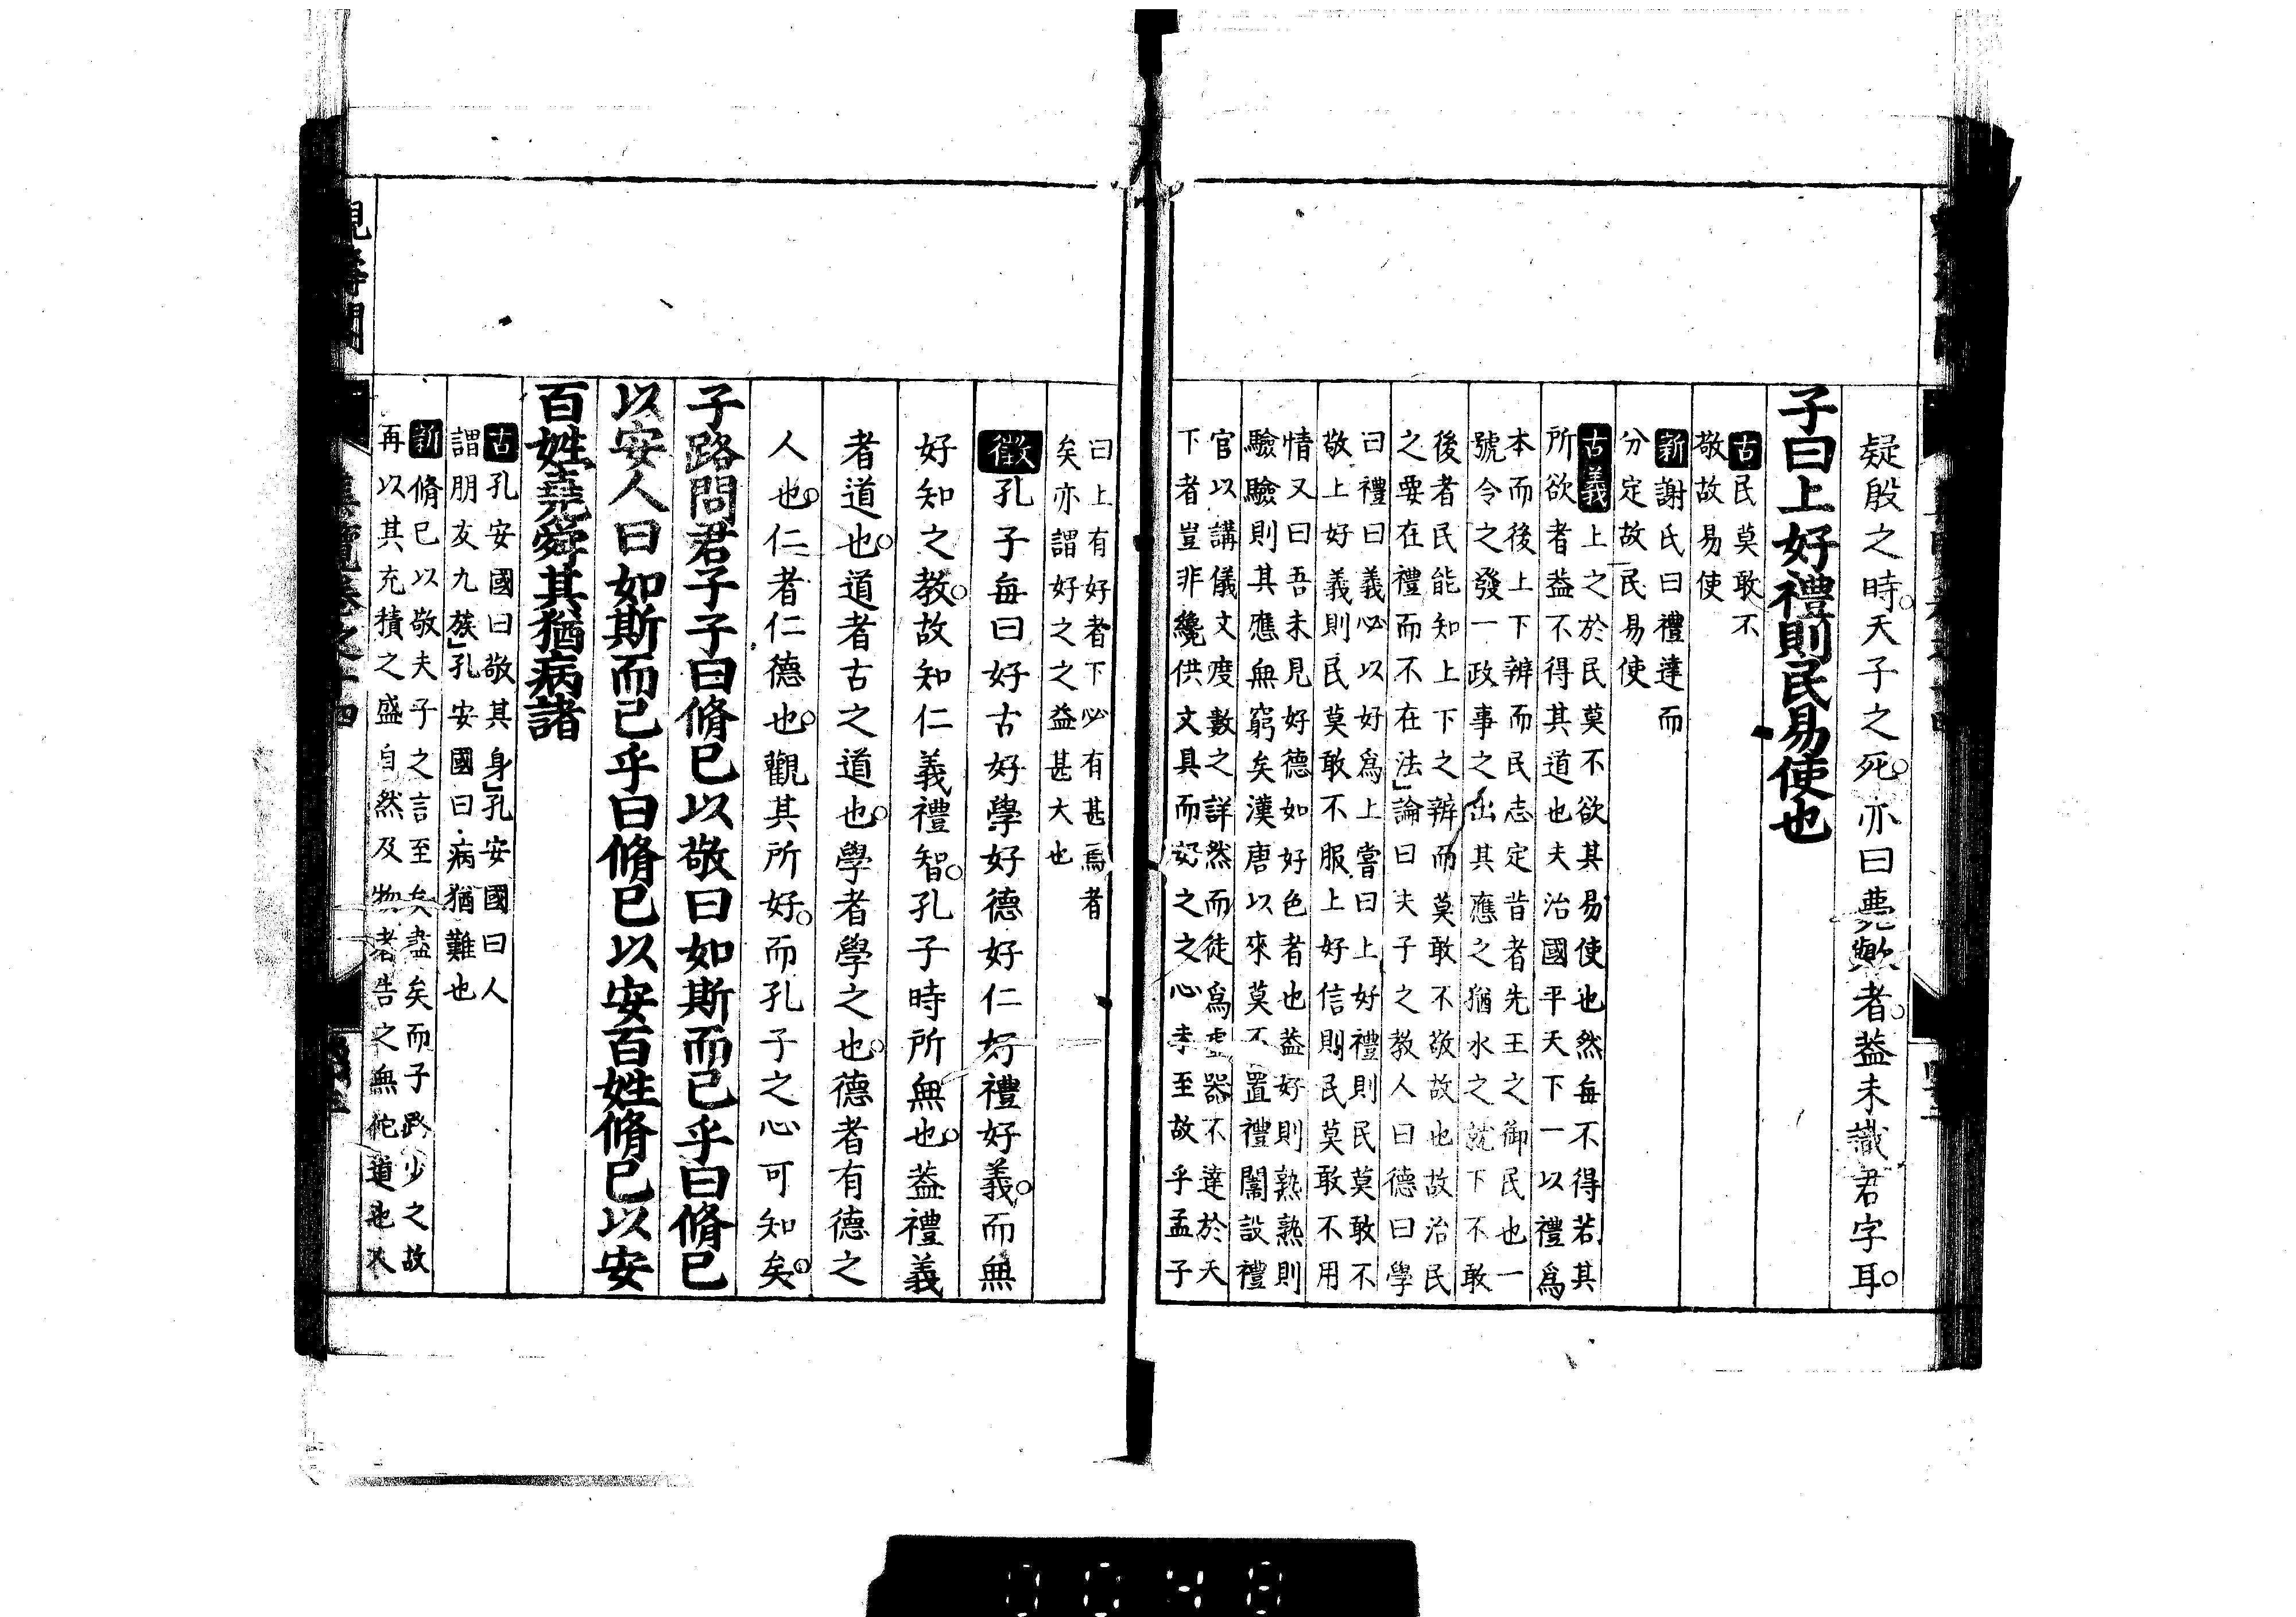 疑殷之時天子之死亦曰薨歟者蓋未識君字耳
子曰上好禮則民易使也
古民莫敢不
敬故易使
新謝氏曰禮達而
分定故民易使
古義上之於民莫不欲其易使也然每不得若其
所欲者蓋不得其道也夫治國平天下一以禮爲
本而後上下辨而民志定昔者先王之御民也一
號令之發一政事之出其應之猶水之就下不敢
後者民能知上下之辨而莫敢不敬故也故治民
之要在禮而不在法」論曰夫子之教人曰德曰學
曰禮曰義必以好爲上嘗曰上好禮則民莫敢不
敬上好義則民莫敢不服上好信則民莫敢不用
情又曰吾未見好德如好色者也蓋好則熟熟則
驗驗則其應無窮矣漢唐以來莫不置禮闈設禮
官以講儀文度數之詳然而徒爲虛器不達於天
下者豈非纔供文具而好之之心未至故乎孟子
曰上有好者下必有甚焉者
矣亦謂好之之益甚大也
徵孔子每曰好古好學好德好仁好禮好義而無
好知之教故知仁義禮智孔子時所無也蓋禮義
者道也道者古之道也學者學之也德者有德之
人也仁者仁德也觀其所好而孔子之心可知矣
子路問君子子曰脩已以敬曰如斯而已乎曰脩已
以安人曰如斯而已乎曰脩已以安百姓脩已以安
百姓堯舜其猶病諸
古孔安國曰敬其身」孔安國曰人
謂朋友九族」孔安國曰病猶難也
新脩已以敬夫子之言至矣盡矣而子路少之故
再以其充積之盛自然及物者告之無佗道也人